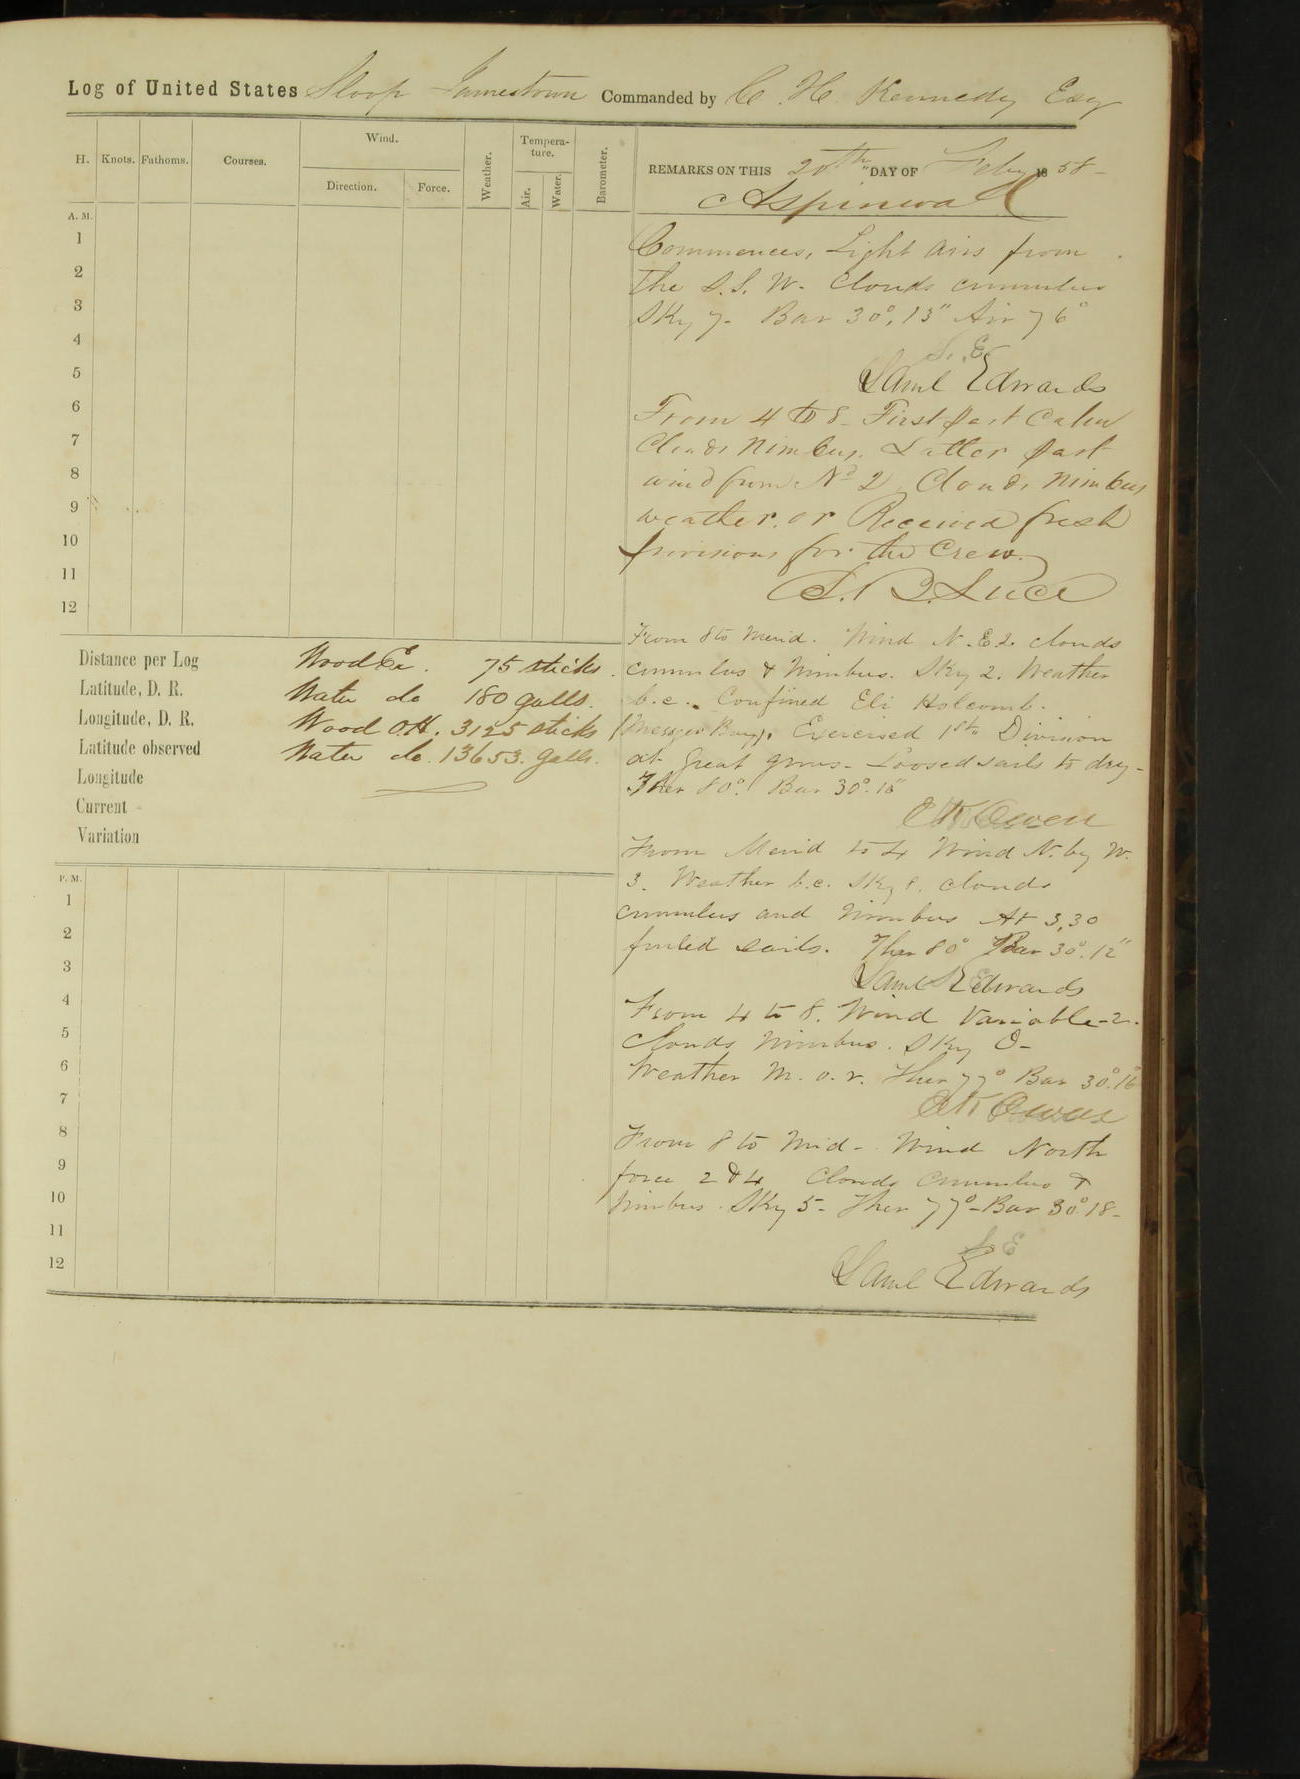 Log of United States Sloop Jamestown Commanded by C. H. Kennedy Esq
H. Knots. Fathoms. Courses. Wind. Direction. Force. Weather. Tempera-ture. Air. Water. Barometer.
REMARKS ON THIS 20th DAY OF Feby 18 58-
Aspinwall
A. M.
1
2
3
4
5
6
7
8
9
10
11
12
Commences, Light airs from
the S. S. W. Clouds cumulus
Sky 7. Bar 30°,13" Air 76°
S. E.
Saml Edwards
From 4 to 8- First part Calm
Clouds Nimbus. Latter part
wind from Nd 2, Clouds Nimbus
weather. or Received fresh
provisions for the Crew.
S. B. Luce
From 8 to Merid. Wind N. E 2. clouds
cumulus & Nimbus. Sky 2. Weather
b. c.. Confined Eli Holcomb.
Exercised 1st Division
at great guns- Loosed sails to dry-
Ther 80° Bar 30°.16"
Owen
Distance per Log
Latitude, D. R.
Longitude, D. R.
Latitude observed
Longitude
Current
Variation
Wood Ex. 75 sticks.
Water do 180 galls.
Wood OH. 3125 sticks
Water do. 13653. galls.
From Merid to 4 Wind N. by W.
3. Weather b.c. Sky 8. clouds
cumulus and Nimbus At 3,30
furled sails. Ther 80° Bar 30°.12"
Saml Edwards
From 4 to 8. Wind Variable-2.
Clouds Nimbus. Sky 0-
Weather m. o. r. Ther 77° Bar 30°.16
Owen
From 8 to Mid-. Wind North
force 2 & 4 Clouds Cumulus &
Nimbus. Sky 5- Ther 77°-Bar 30°.18-
S E
Saml Edwards
P. M.
1
2
3
4
5
6
7
8
9
10
11
12